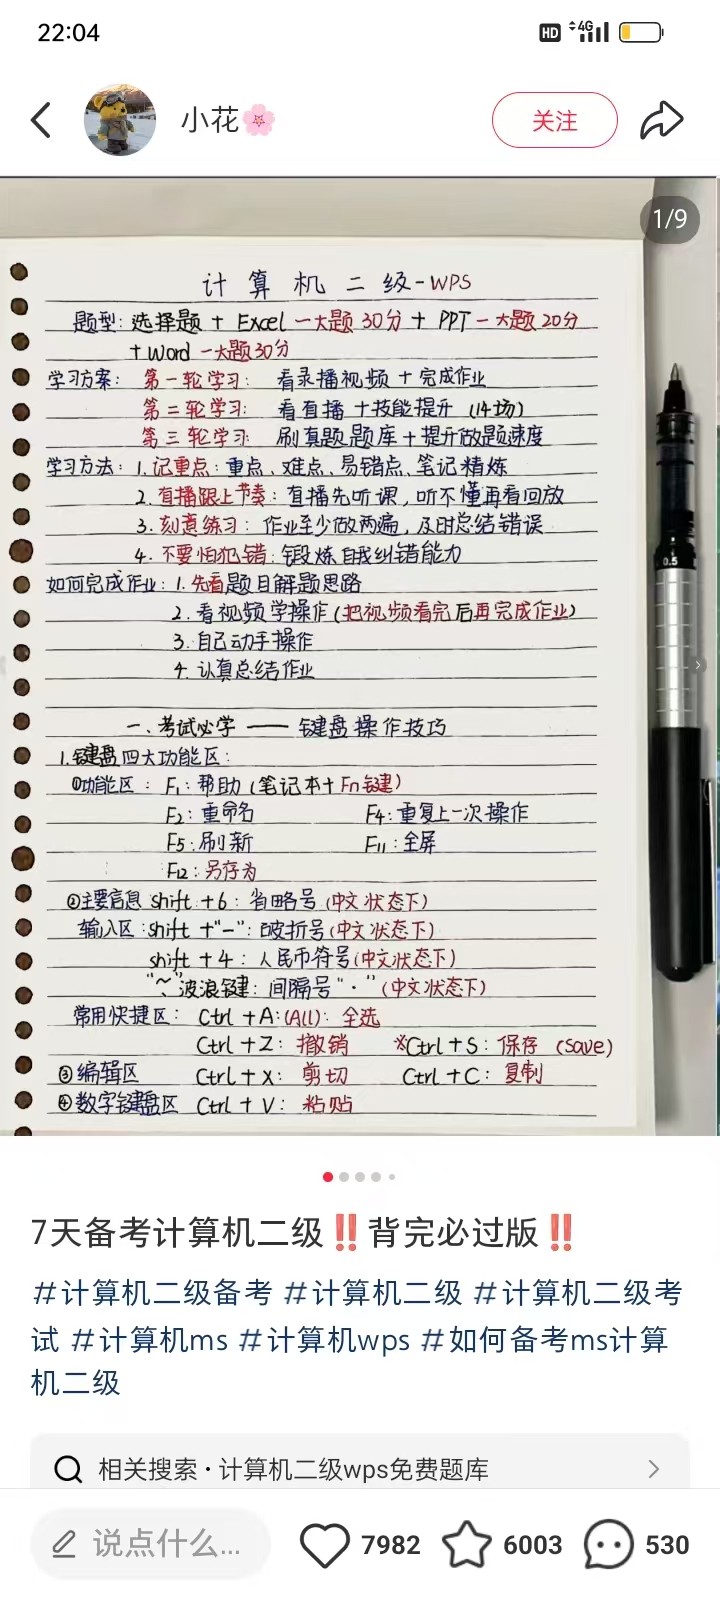 22:04
HD 4G
小花🌸
关注
1/9
计算机二级-WPS
题型: 选择题 + Excel 一大题 30分 + PPT 一大题 20分
+ Word 一大题30分
学习方案: 第一轮学习: 看录播视频 + 完成作业
第二轮学习: 看直播 + 技能提升 (14场)
第三轮学习: 刷真题题库 + 提升做题速度
学习方法: 1. 记重点: 重点、难点、易错点、笔记精炼
2. 直播跟上节奏: 直播先听课, 听不懂再看回放
3. 刻意练习: 作业至少做两遍, 及时总结错误
4. 不要怕犯错: 锻炼自我纠错能力
如何完成作业: 1. 先看题目解题思路
2. 看视频学操作 (把视频看完后再完成作业)
3. 自己动手操作
4. 认真总结作业
一、考试必学 —— 键盘操作技巧
1. 键盘四大功能区:
①功能区: F1: 帮助 (笔记本+Fn键)
F2: 重命名 F4: 重复上一次操作
F5: 刷新 F11: 全屏
F12: 另存为
②主要信息 shift +6: 省略号 (中文状态下)
输入区: shift +"-": 破折号 (中文状态下)
shift + 4: 人民币符号 (中文状态下)
"~" 波浪键: 间隔号 "·" (中文状态下)
常用快捷区: Ctrl + A: (All): 全选
Ctrl + Z: 撤销 ※Ctrl + S: 保存 (Save)
③编辑区 Ctrl + X: 剪切 Ctrl + C: 复制
④数字键盘区 Ctrl + V: 粘贴
0.5
7天备考计算机二级‼️背完必过版‼️
#计算机二级备考 #计算机二级 #计算机二级考
试 #计算机ms #计算机wps #如何备考ms计算
机二级
相关搜索·计算机二级wps免费题库
说点什么... 7982 6003 530